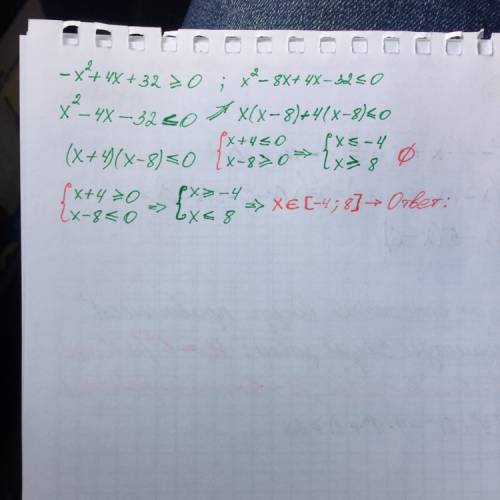 -x²+4x+32≥0 ; x²-8x+4x-32≤0
x²-4x-32≤0 ⇒ x(x-8)+4(x-8)≤0
(x+4)(x-8)≤0 {x+4≤0 x-8≥0 ⇒ {x≤-4 x≥8 ∅
{x+4≥0 x-8≤0 ⇒ {x≥-4 x≤8 ⇒ x∈[-4;8] → Ответ: